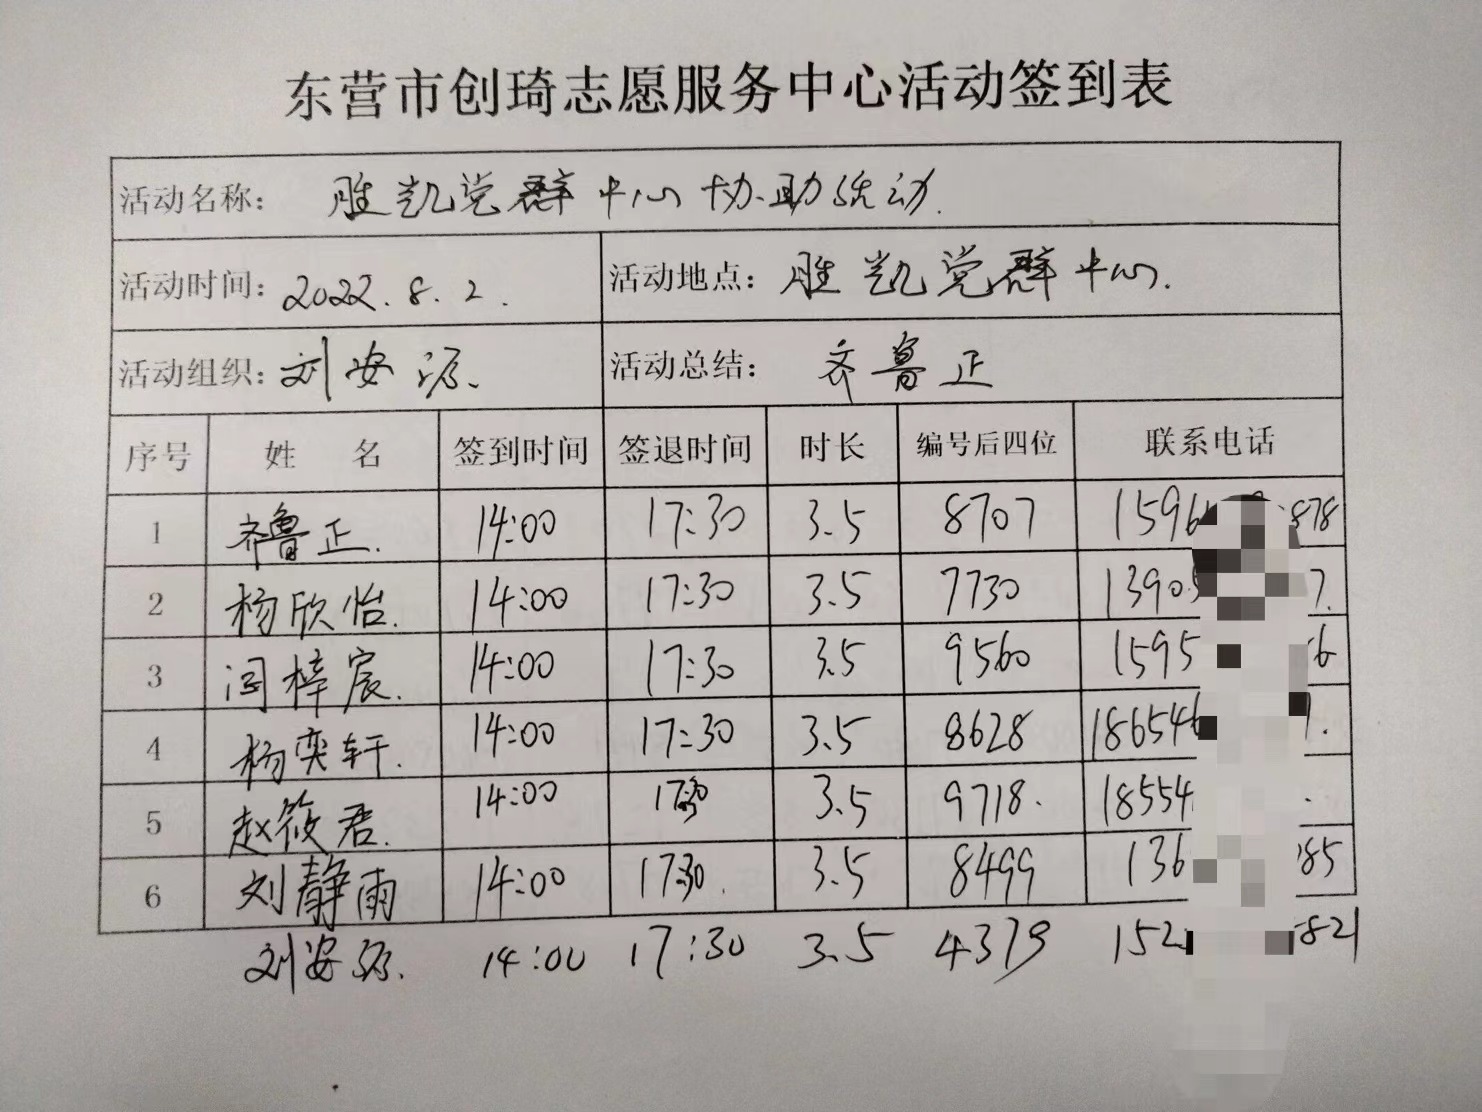 东营市创琦志愿服务中心活动签到表
活动名称： 胜凯党群中心协助活动.
活动时间： 2022.8.2. 活动地点： 胜凯党群中心.
活动组织： 刘安源. 活动总结： 齐鲁正
序号 姓 名 签到时间 签退时间 时长 编号后四位 联系电话
1 齐鲁正. 14:00 17:30 3.5 8707 1596 878
2 杨欣怡. 14:00 17:30 3.5 7730 1390 7.
3 闫梓宸. 14:00 17:30 3.5 9560 1595 6
4 杨奕轩. 14:00 17:30 3.5 8628 186546 1.
5 赵筱君. 14:00 17:30 3.5 9718. 18554 .
6 刘静雨 14:00 17:30. 3.5 8499 136 85
刘安源. 14:00 17:30 3.5 4379 152 821